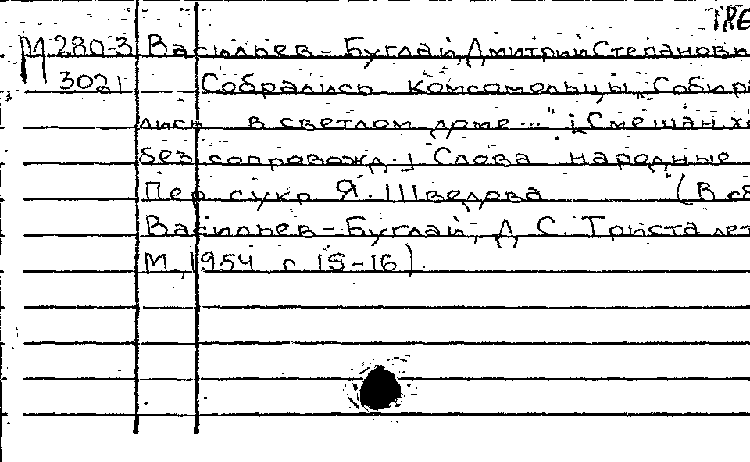 М 280-3 Васильев-Буглай, Дмитрий Степанович
3021 Собрались комсомольцы, "Собира
лись в светлом доме..." [Смешан. х
без сопровожд.] Слова народные
Пер с укр Я. Шведова (В сб
Васильев-Буглай, Д. С. Триста лет
М., 1954 с 15-16).